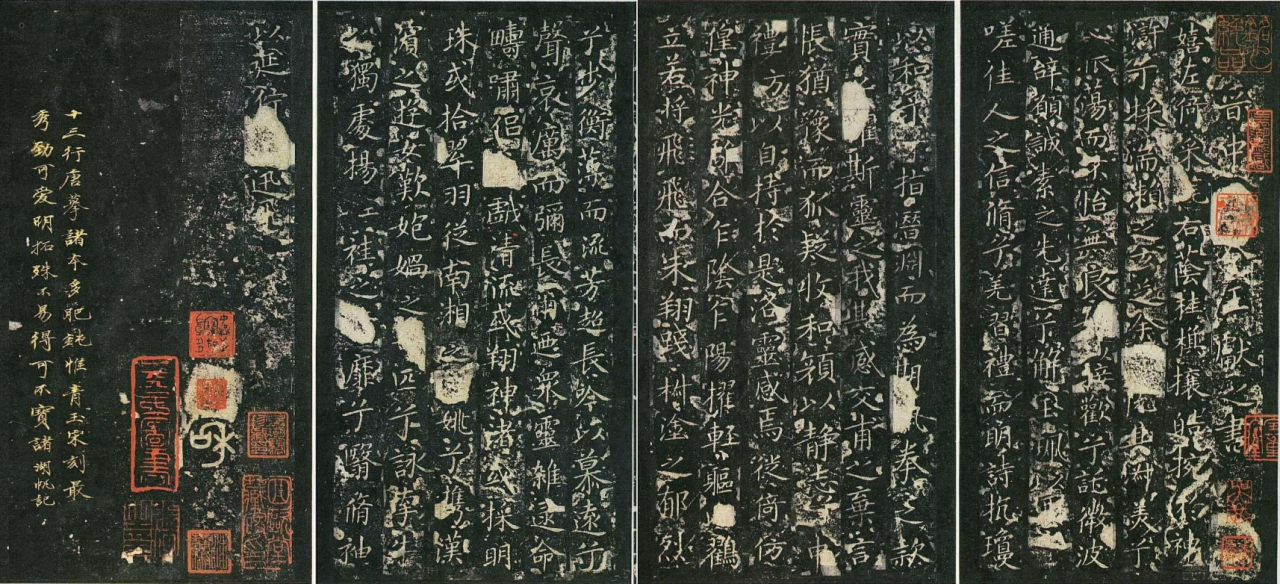 晉中王獻之書
嬉左倚采旄右蔭桂旗攘皓捥於神
滸兮採湍瀨之玄芝余悅其淑美兮
心振蕩而不怡無良以接歡兮託微波
通辭願誠素之先達兮解玉珮以要之
嗟佳人之信脩兮羌習禮而明詩抗瓊
和予兮指潛淵而為期執拳之款
實懼斯靈之我欺感交甫之棄言
悵猶豫而狐疑收和顏以靜志兮申
禮方以自持於是洛靈感焉徙倚仿
偟神光離合乍陰乍陽擢軽軀以鶴
立若將飛飛而未翔踐椒塗之郁烈
步蘅薄而流芳超長吟以慕遠兮
聲哀厲而彌長爾乃衆靈雜遝命
疇嘯侶戲清流或翔神渚或採明
珠或拾翠羽從南湘之二姚兮攜漢
濱之遊女歎妑媧之匹兮詠牽牛
之獨處揚輕袿之靡兮翳脩袖
以延佇迅飛
十三行唐摹諸本多肥鈍惟青玉宋刻最
秀勁可愛明拓殊不易得可不寶諸湖帆記